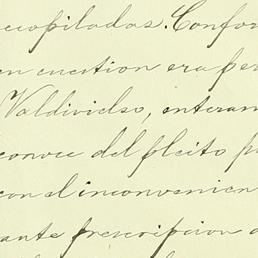 recopiladas. Confor
en cuestion era per
Valdivielso, enteram
conoce del pleito p
con el inconvenien
ante prescripcion d